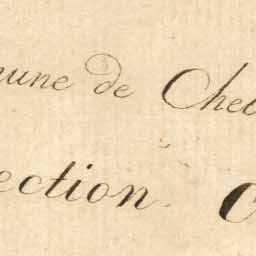 mune de Che
ection. C